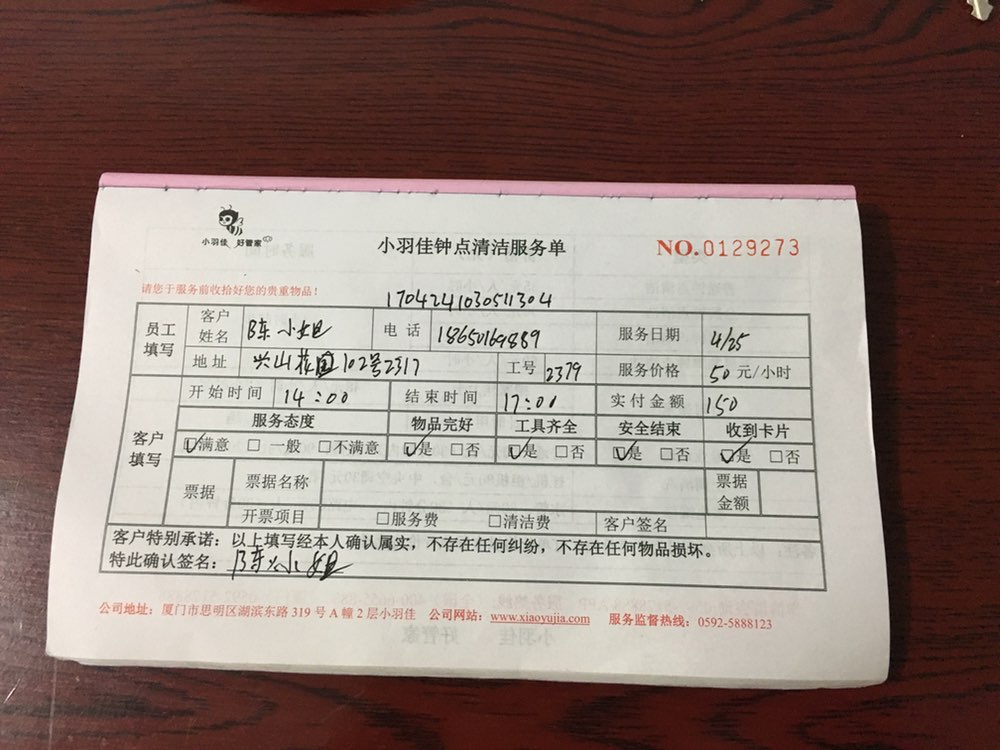 小羽佳 好管家
小羽佳钟点清洁服务单
NO.0129273
请您于服务前收拾好您的贵重物品！
1704241030511304
员工填写 客户姓名 陈小姐 电话 18650164889 服务日期 4/25
地址 兴山花园102号2317 工号 2379 服务价格 50元/小时
客户填写 开始时间 14:00 结束时间 17:00 实付金额 150
服务态度 物品完好 工具齐全 安全结束 收到卡片
☑满意 □一般 □不满意 ☑是 □否 ☑是 □否 ☑是 □否 ☑是 □否
票据 票据名称 票据金额
开票项目 □服务费 □清洁费 客户签名
客户特别承诺：以上填写经本人确认属实，不存在任何纠纷，不存在任何物品损坏。
特此确认签名：陈小姐
公司地址：厦门市思明区湖滨东路319号A幢2层小羽佳 公司网站：www.xiaoyujia.com 服务监督热线：0592-5888123